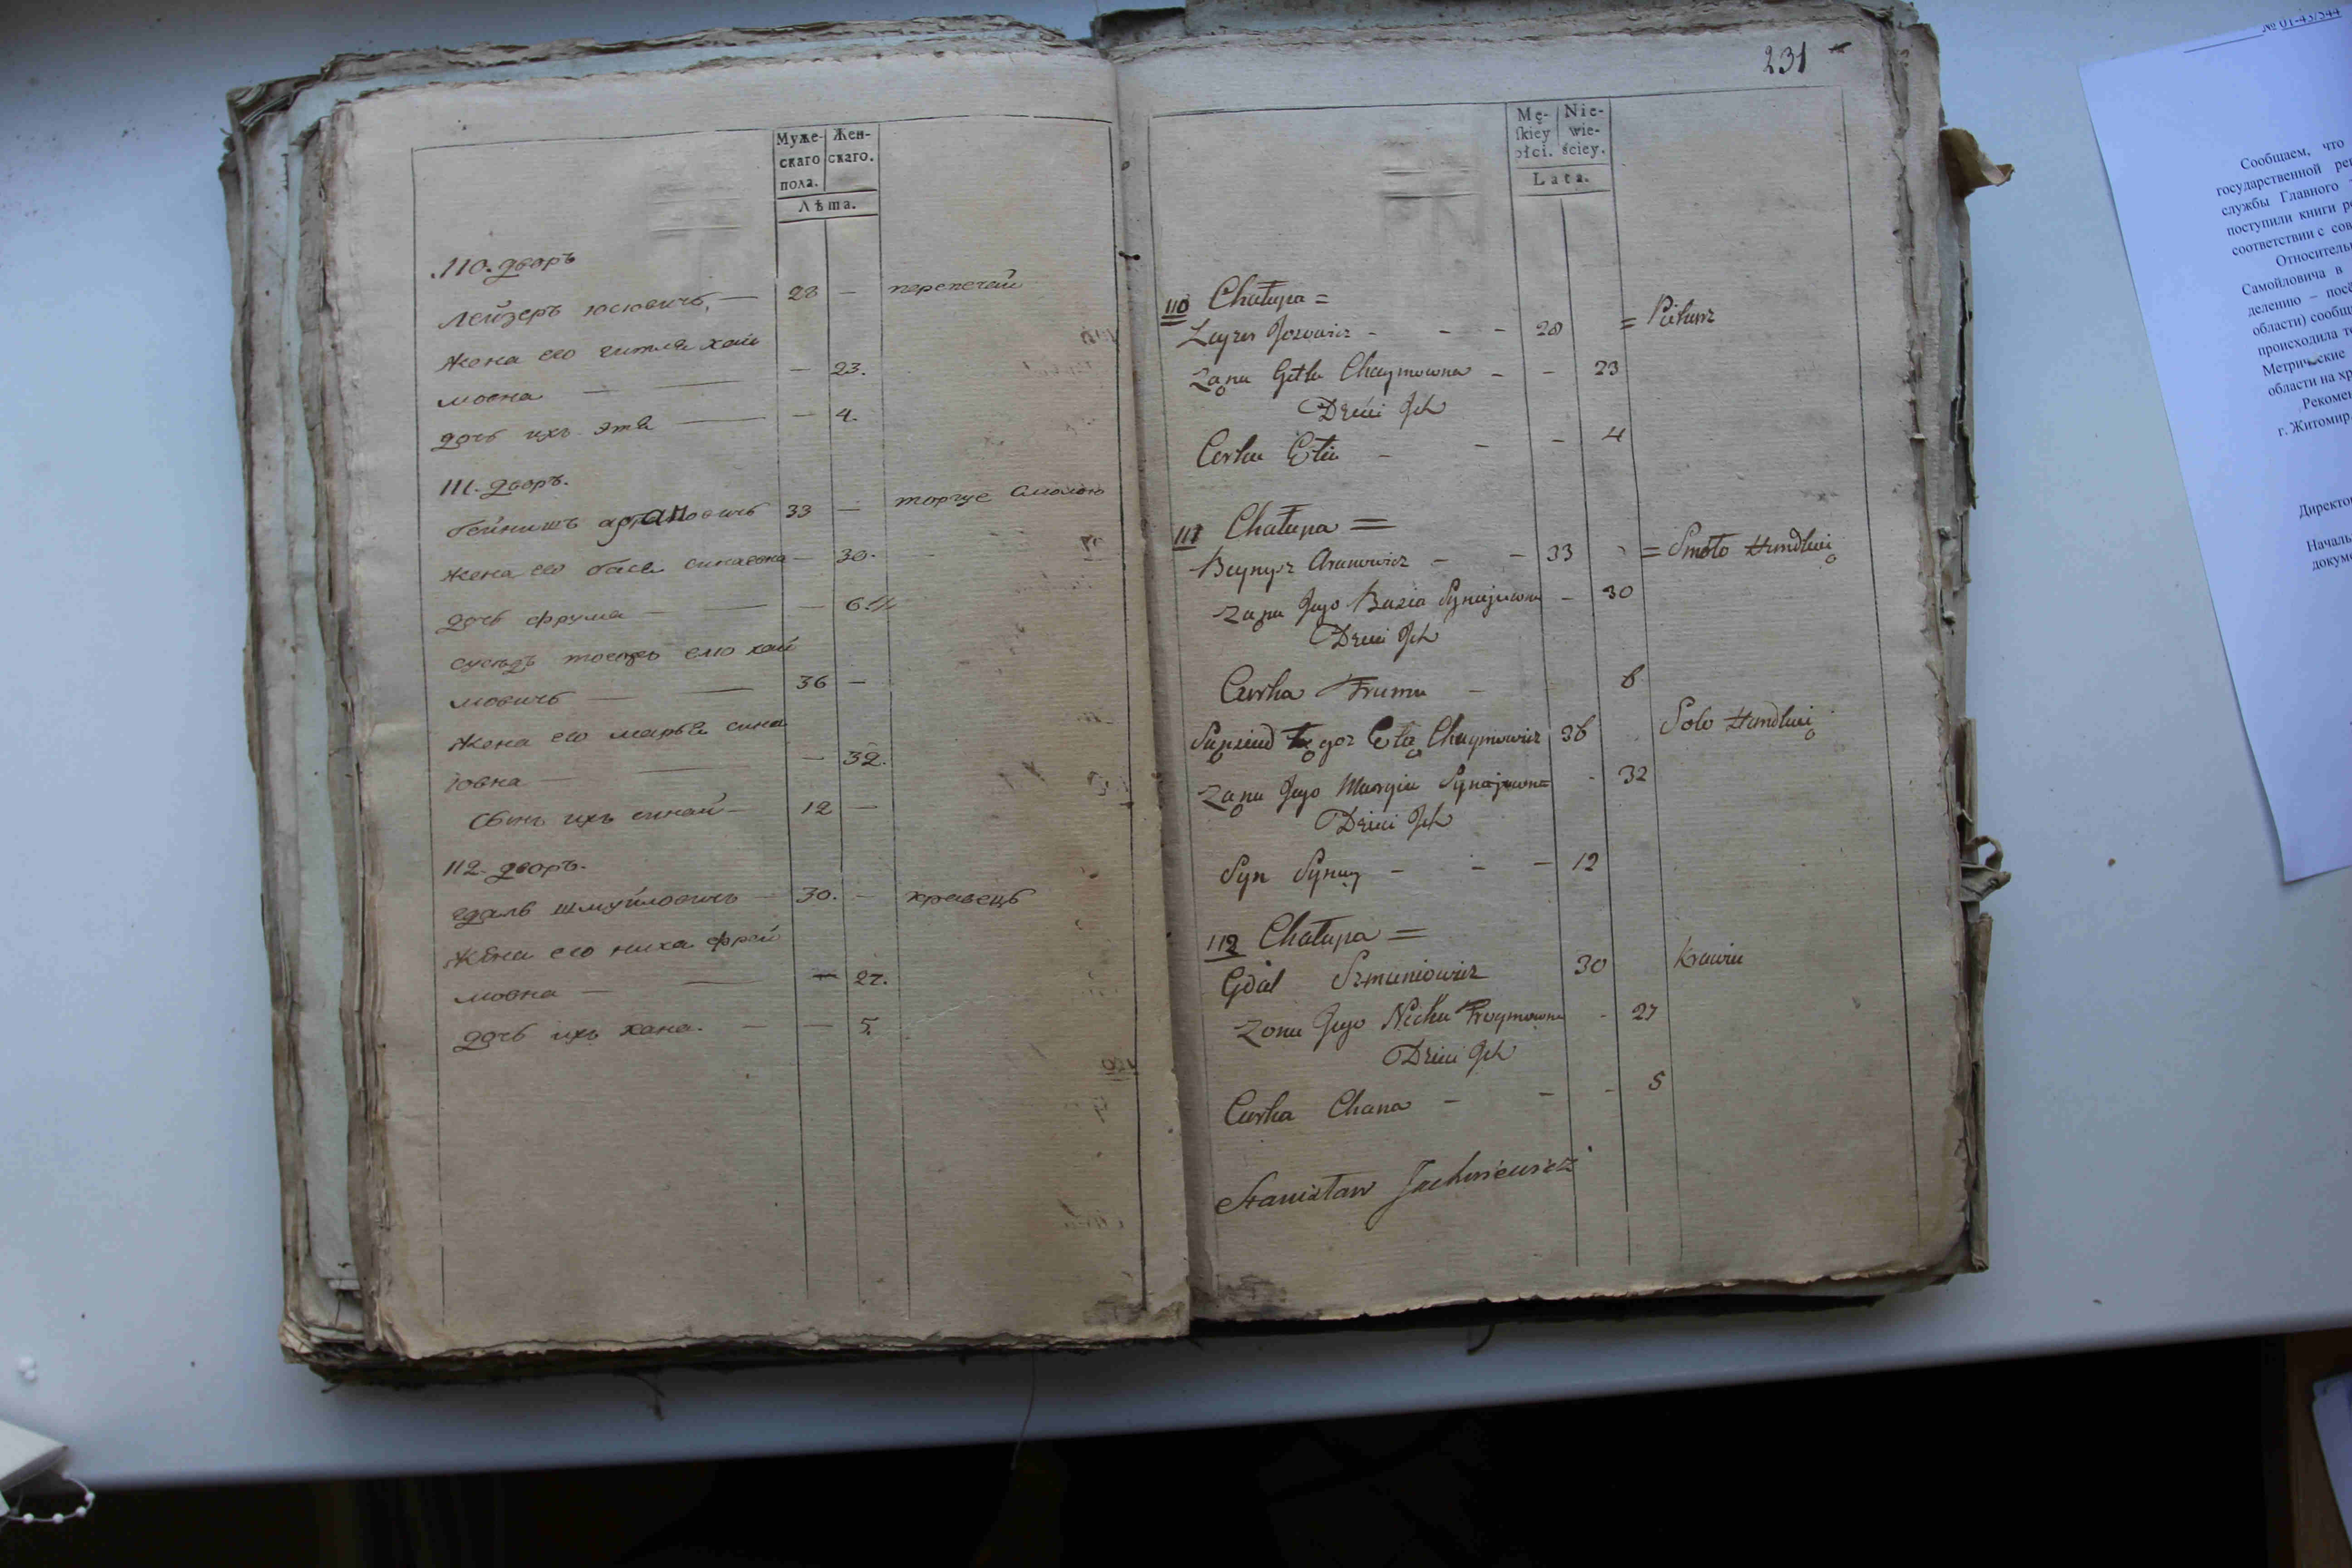 Муже- Жен-
скаго скаго.
пола.
Лѣта.
110. дворъ
Лейзеръ юсювичъ — 28 — перепечай
жена его гитля хай
мовна — — 23.
дочь ихъ этя — — 4.
111. дворъ.
бейнишъ ароновичъ 33 — торгуе смолою
жена его бася синаевна — 30.
дочь фрума — — 6.
сусѣдъ тогожъ елю хай
мовичъ — 36 —
жена его марья сина
ювна — — 32.
Сынъ ихъ синай — 12 —
112. дворъ.
гдаль шмуйловичъ — 30. — кравець
жена его ниха фрой
мовна — — 27.
дочь ихъ хана. — — 5.
231
Mę- Nie-
ſkiey wie-
płci. ściey.
Lata.
110 Chałupa =
Leyzer Jozowicz - - - 28 = Piekarz
Zona Getla Chaymowna - - 23
Dzieci Ich
Curka Etia - - - 4
111 Chałupa =
Beynysz Aranowicz - - 33 = Smoło Handluie
Zona Jego Basia Synajowna - 30
Dzieci Ich
Curka Fruma - 6
Sąsiad Tegoz Ela Chaymowicz 36 Solo Handluie
Zona Jego Maryia Synajowna - 32
Dzieci Ich
Syn Synay - - - 12
112 Chałupa =
Gdal Szmuniowicz 30 Krawiec
Zona Jego Nicha Froymowna - 27
Dzieci Ich
Curka Chana - - - 5
Stanisław
№ 01-43/544
Сообщаем, что
государственной
службы Главного
поступили книги
соответствии с
Самойловича в
делению –
области)
происходила
Метрические
области на
г. Житомир